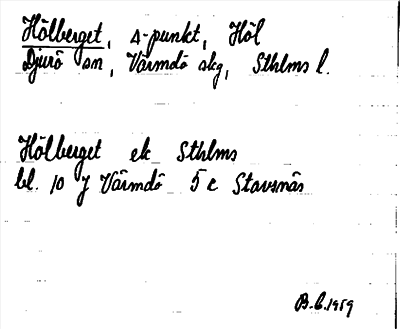 Hölberget, Δ-punkt, Höl
Djurö sn, Värmdö skg, Sthlms l.
Hölberget ek Sthlms
bl. 10 J Värmdö 5 c Stavsnäs
B.C. 1959